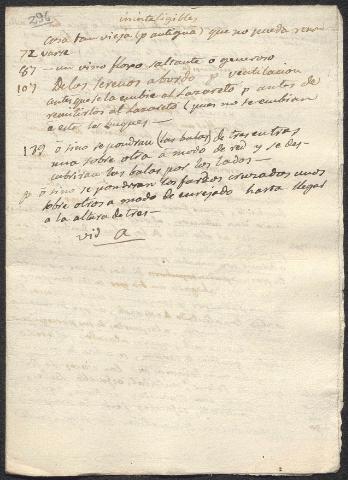 296
ininteligibles
cosa tan vieja (p antigua) que no pueda reno
72 varse
87 — un vino floxo saltante o generoso
107 De los serenos a bordo p ventilacion
antes que se la embie al Lazareto p antes de
remitirlos al Lazareto (pues no se embiaran
a este los buques —
139 ō sino se pondran (las balas) de tres en tres
una sobre otra a modo de red y se des-
cubriran las balas por los lados —
p ō sino se pondran los fardos cruzados unos
sobre otros a modo de enrejado hasta llegar
a la altura de tres —
vid a